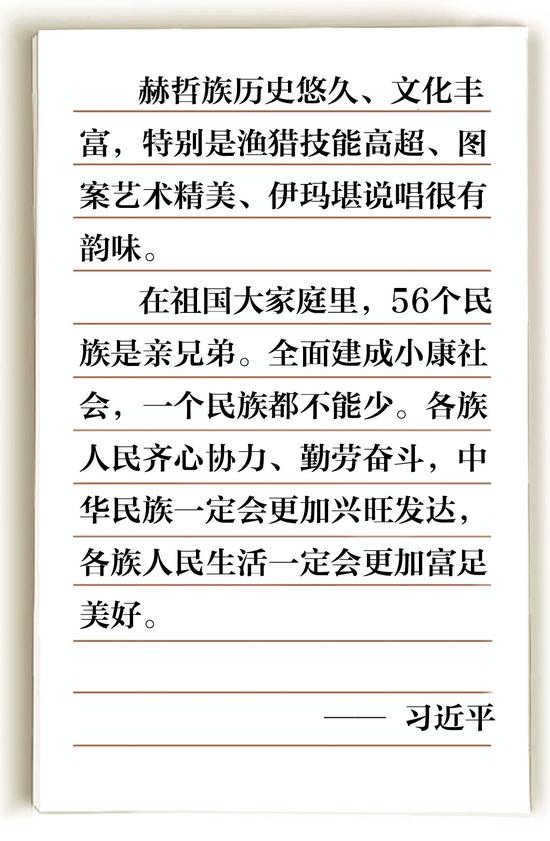 赫哲族历史悠久、文化丰
富，特别是渔猎技能高超、图
案艺术精美、伊玛堪说唱很有
韵味。
在祖国大家庭里，56个民
族是亲兄弟。全面建成小康社
会，一个民族都不能少。各族
人民齐心协力、勤劳奋斗，中
华民族一定会更加兴旺发达，
各族人民生活一定会更加富足
美好。
—— 习近平